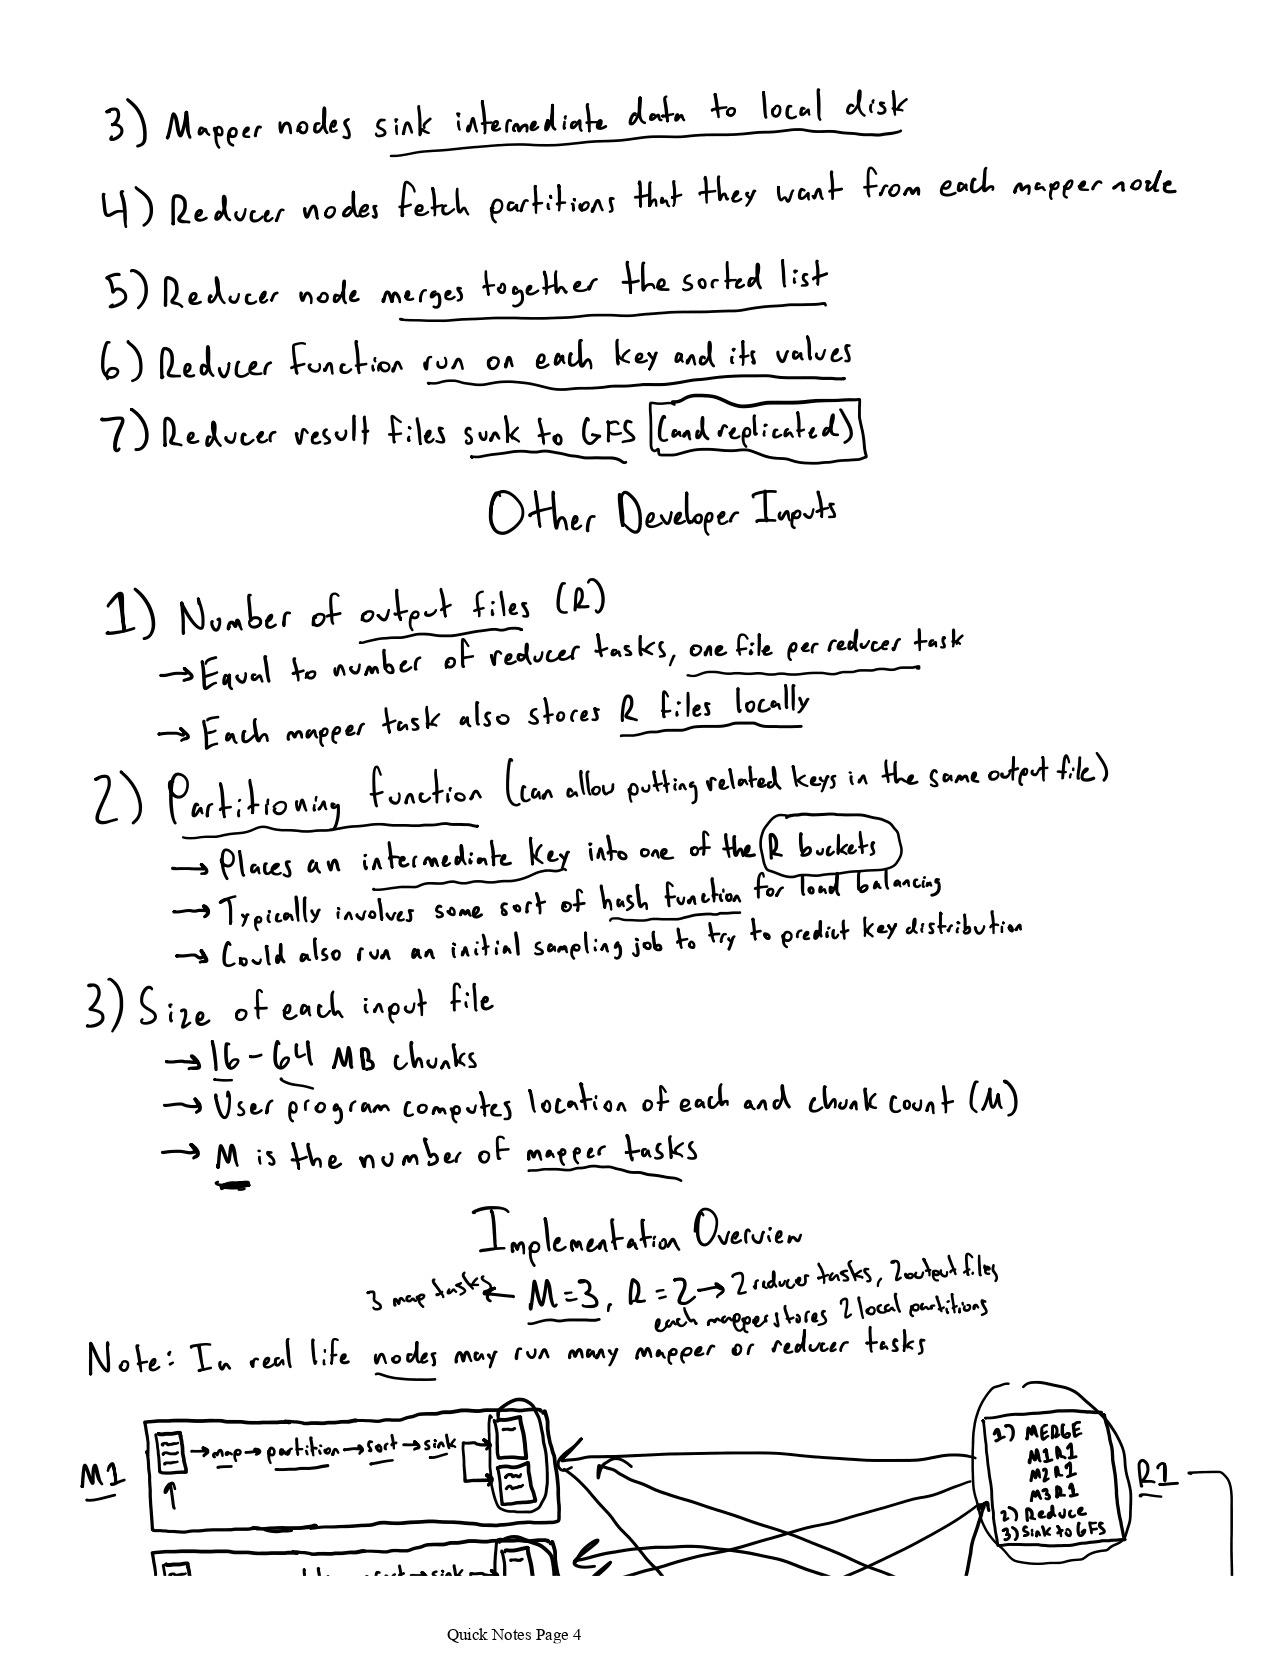 3) Mapper nodes sink intermediate data to local disk
4) Reducer nodes fetch partitions that they want from each mapper node
5) Reducer node merges together the sorted list
6) Reducer function run on each key and its values
7) Reducer result files sunk to GFS (and replicated)
Other Developer Inputs
1) Number of output files (R)
→ Equal to number of reducer tasks, one file per reducer task
→ Each mapper task also stores R files locally
2) Partitioning function (can allow putting related keys in the same output file)
→ Places an intermediate key into one of the R buckets
→ Typically involves some sort of hash function for load balancing
→ Could also run an initial sampling job to try to predict key distribution
3) Size of each input file
→ 16-64 MB chunks
→ User program computes location of each and chunk count (M)
→ M is the number of mapper tasks
Implementation Overview
3 map tasks ← M=3, R=2 → 2 reducer tasks, 2 output files
each mapper stores 2 local partitions
Note: In real life nodes may run many mapper or reducer tasks
M1
→ map → partition → sort → sink
1) MERGE
M1R1
M2R1
M3R1
2) Reduce
3) Sink to GFS
R1
sort → sink
Quick Notes Page 4